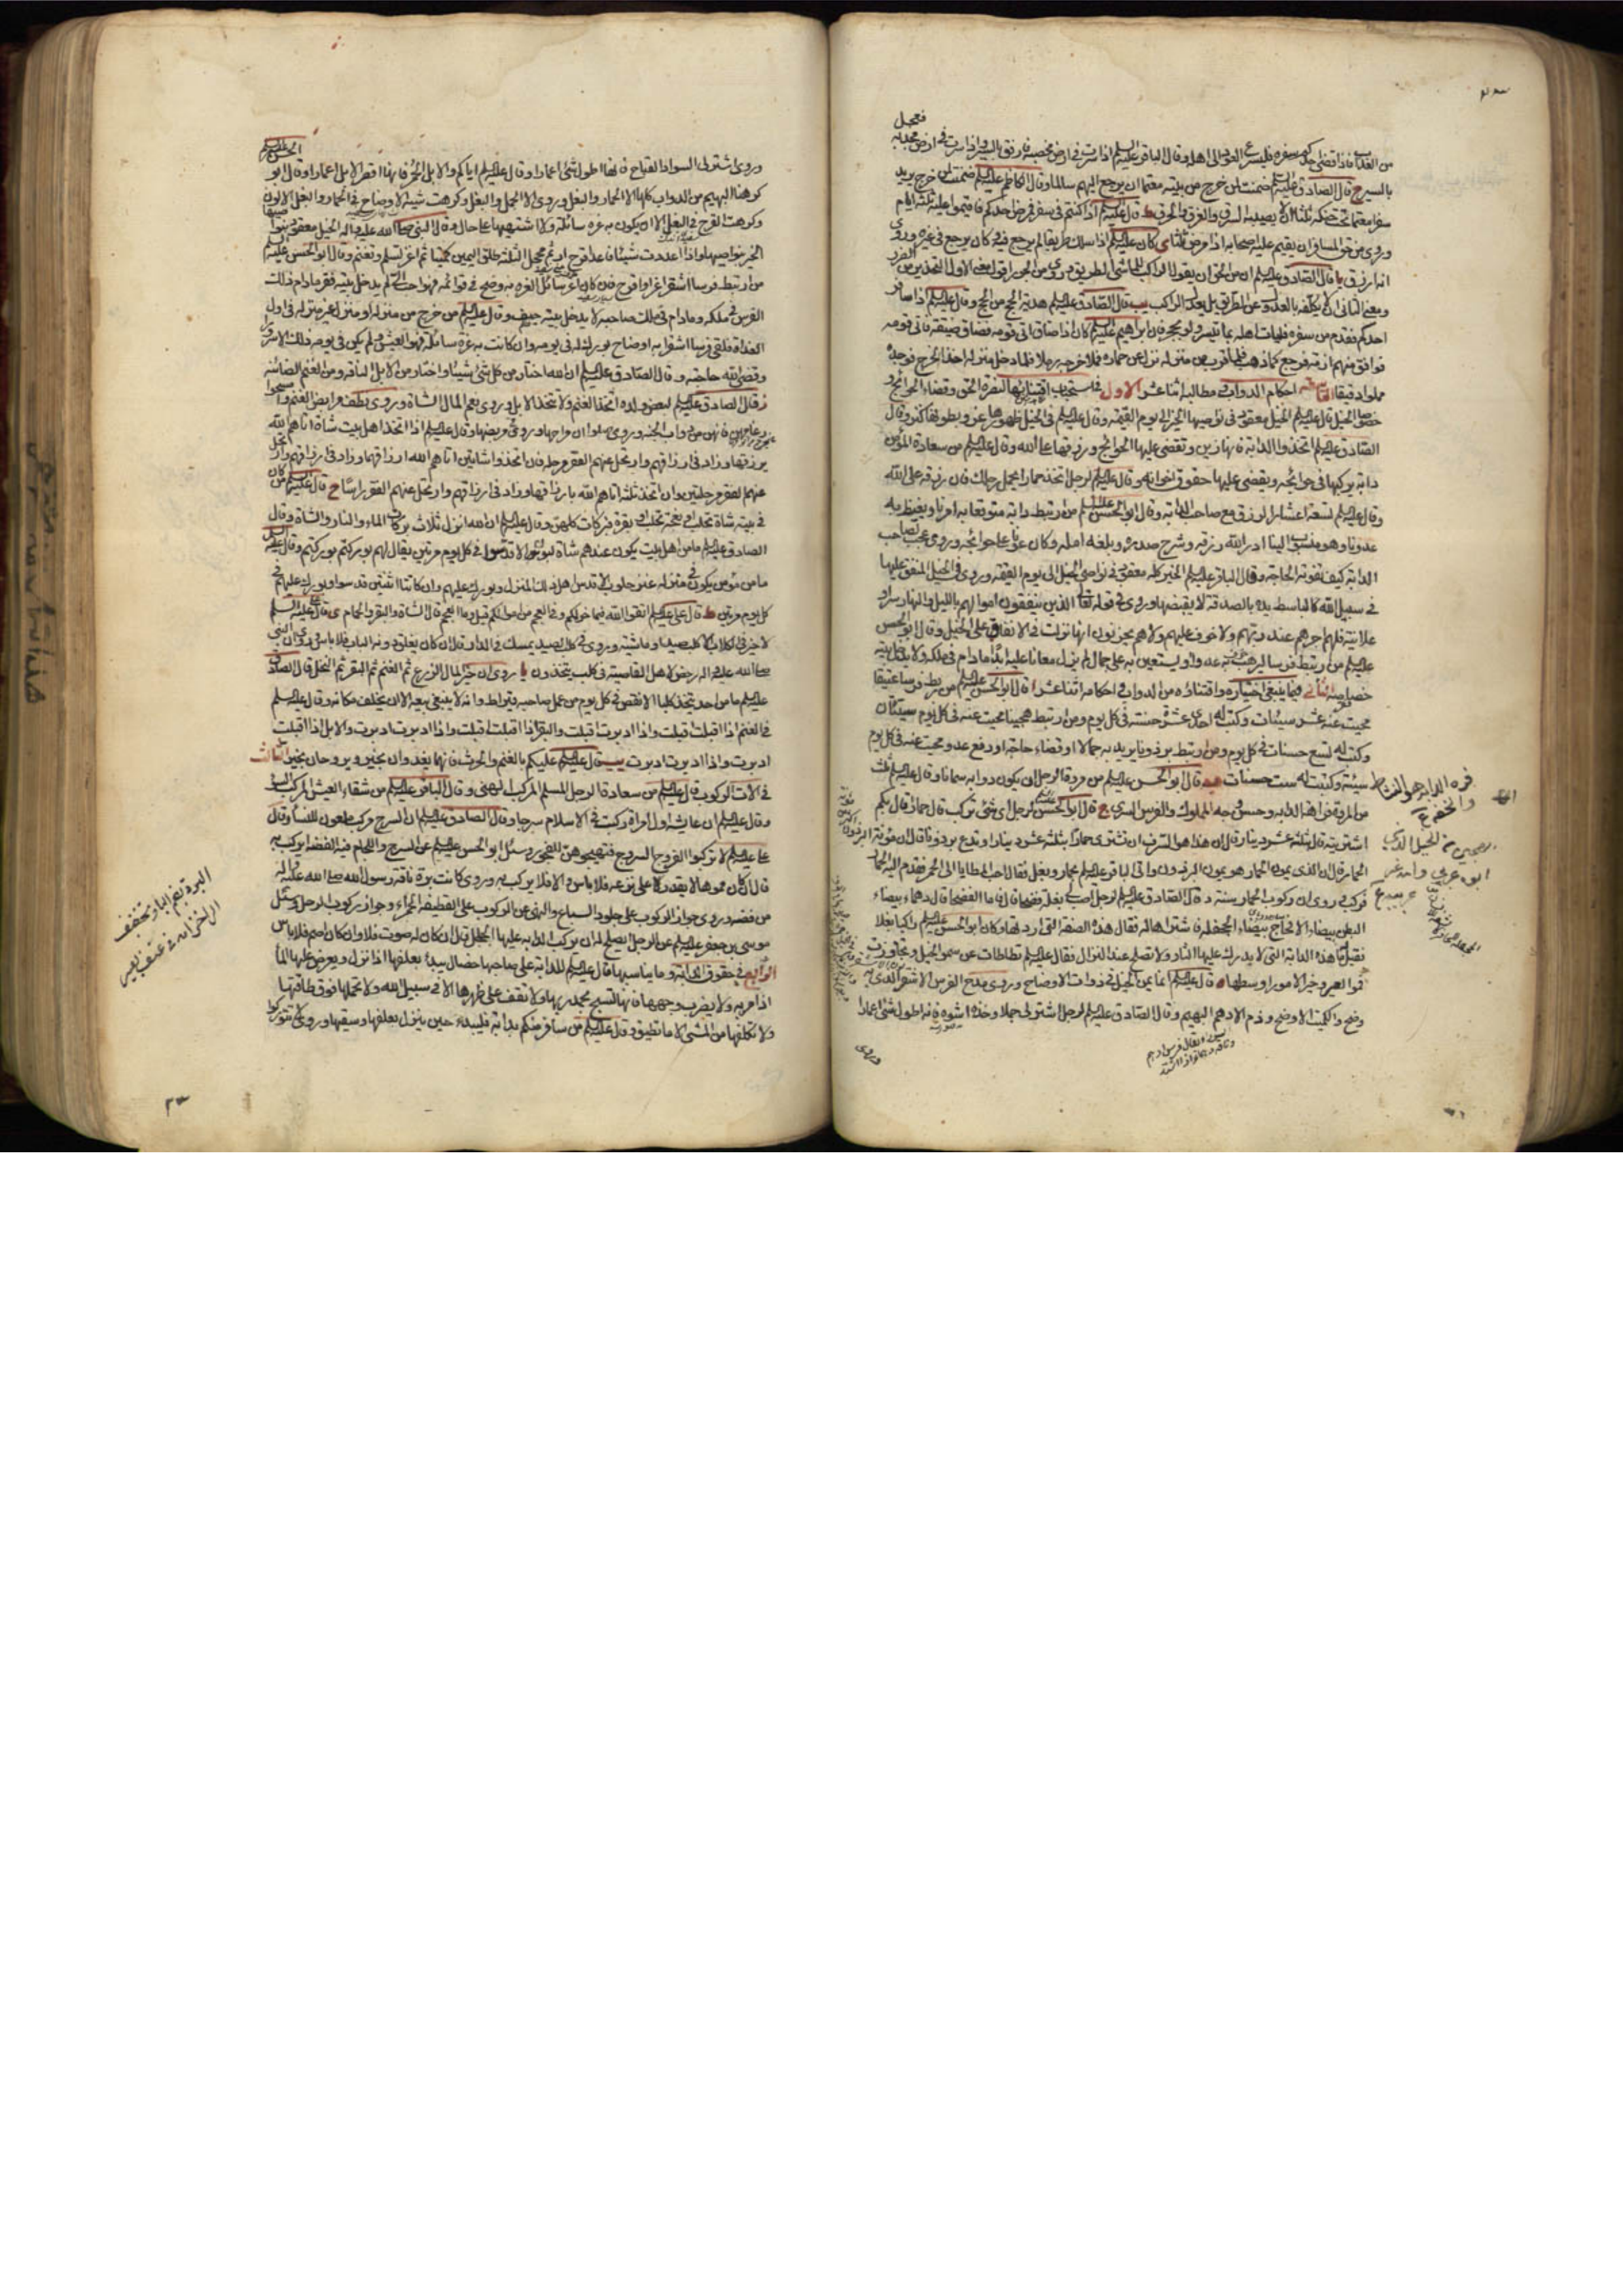 فعجل
من العذاب فاذا قضى احدكم سفره فليسرع العود الى اهله وقال الباقر عليه السلم اذا سرت فى ارض مخصبة فارفق بالسير واذا سرت فى ارض مجدبة
بالسير ح قال الصادق عليه السلم ضمنت لمن خرج من بيته معتما ان يرجع اليهم سالما وقال الكاظم عليه السلم ضمنت لمن خرج يريد
سفرا معتما تحت حنكه ثلثا الا يصيبه السرق والغرق والحرق ط قال عليه السلم اذا كنتم فى سفر فمرض احدكم فاقيموا عليه ثلثة ايام
وروى من حق المسافر ان يقيم عليه اصحابه اذا مرض ثلثا ى كان عليه السلم اذا سلك طريقا لم يرجع فيه كان يرجع فى غيره وروى
انه ارزق يا قال الصادق عليه السلم ان من الحق ان يقول الراكب للماشى الطريق وروى من الجور اقول معنى الاول التحذير من الضرر
ومعنى الثانى ان لا يكلفه بالعدول عن الطريق بل يعدل الراكب يب قال الصادق عليه السلم هدية الحج من الحج وقال عليه السلم اذا سافر
احدكم فقدم من سفره فليات اهله بما تيسر ولو بحجر فان ابراهيم عليه السلم كان اذا ضاق اتى قومه فضاق ضيقة فاتى قومه
فوافق منهم ازمة فرجع كما ذهب فلما قرب من منزله نزل عن حماره فملا خرجه رملا فلما دخل منزله اخذ الخرج فوجده
مملوا دقيقا احكام الدواب مطالبه اثنا عشر الاول فى استحباب اقتنائها لنصرة الحق وقضاء الحوائج و
خصوصا الخيل قال عليه السلم الخيل معقود فى نواصيها الخير الى يوم القيمة وقال عليه السلم فى الخيل ظهورها عز وبطونها كنز وقال
الصادق عليه السلم اتخذوا الدابة فانها زين وتقضى عليها الحوائج ورزقها على الله وقال عليه السلم من سعادة المؤمن
دابة يركبها فى حوائجه ويقضى عليها حقوق اخوانه وقال عليه السلم لرجل اتخذ حمارا يحمل رحلك فان رزقه على الله
وقال عليه السلم تسعة اعشار الرزق مع صاحب الدابة وقال ابو الحسن عليه السلم من ارتبط دابة متوقعا به امرنا ويغيظ به
عدونا وهو منسوب الينا ادر الله رزقه وشرح صدره وبلغه امله وكان عونا على حوائجه وروى عجب لصاحب
الدابة كيف تفوته الحاجة وقال الباقر عليه السلم الخير كله معقود فى نواصى الخيل الى يوم القيمة وروى فى الخيل المنفق عليها
فى سبيل الله كالباسط يده بالصدقة لا يقبضها وروى فى قوله تعالى الذين ينفقون اموالهم بالليل والنهار سرا و
علانية فلهم اجرهم عند ربهم ولا خوف عليهم ولا هم يحزنون انها نزلت فى الانفاق على الخيل وقال ابو الحسن
عليه السلم من ارتبط فرسا ليرهب به عدوا او يستعين به على جماله لم يزل معانا عليه ابدا ما دام فى ملكه ولا يدخل بيته
خصاصة الثانى فيما ينبغى اختياره واقتناؤه من الدواب واحكامه اثنا عشر ا قال ابو الحسن عليه السلم من ربط فرسا عتيقا
محيت عنه عشر سيئات وكتب له احدى عشرة حسنة فى كل يوم ومن ارتبط هجينا محيت عنه فى كل يوم سيئتان
وكتب له تسع حسنات فى كل يوم ومن ارتبط برذونا يريد به جمالا او قضاء حاجة او دفع عدو محيت عنه فى كل يوم
سيئة وكتبت له ست حسنات ب قال ابو الحسن عليه السلم من مروة الرجل ان يكون دوابه سمانا وقال عليه السلم ثلث
من المروة فراهة الدابة وحسن وجه المملوك والفرس السرى ج قال ابو الحسن عليه السلم لرجل اى شئ تركب قال حمار قال بكم
اشتريته قال بثلثة عشر دينار قال ان هذا هو السرف ان تشترى حمارا بثلثة عشر دينارا وتدع برذونا قال ان مؤنة البرذون
الحمار قال ان الذى يمون الحمار هو يمون البرذون واتى الباقر عليه السلم بحمار وبغل فقال احب المطايا الى الحمر فقدم اليه الحمار
فركب وروى ان ركوب الحمار سنة د قال الصادق عليه السلم لرجل اصب لى بغلة فضحاء قال انى ما الفضحاء قال دهماء بيضاء
البطن بيضاء الافحاج بيضاء الجحفلة فاشتراها له فقال هذه الصفة التى اردتها وكان ابو الحسن عليه السلم راكبا بغلا
فقيل ما هذه الدابة التى لا يدرك عليها الثار ولا تصلح عند النزال فقال عليه السلم تطاطات عن سمو الخيل وتجاوزت
قموء العير وخير الامور اوسطها ه قال عليه السلم انما يمن الخيل فى ذوات الاوضاح وروى مدح الفرس الاشقر الذى به
وضح والكميت الاوضح وذم الادهم البهيم وقال الصادق عليه السلم لرجل اشتر لى جملا وخذه اشوه فانه اطول شئ اعمارا
وروى
وروى اشتر لى السود القباح فانها اطول شئ اعمارا وقال عليه السلم اياكم والابل الحمر فانها اقصر الابل اعمارا وقال ابو الحسن عليه السلم
كرهنا البهيم من الدواب كلها الا الحمار والبغل وروى الا الجمل والبغل وكرهت شية الاوضاح فى الحمار والبغل الالوان
وكرهت القرح فى البغل الا ان يكون به غرة سائلة ولا اشتهيها على حال و قال النبى صلى الله عليه واله الخيل معقود بنواصيها
الخير بنواصيها واذا اعددت شيئا فاعد اقرح ارثم محجل الثلثة طلق اليمين كميتا ثم اغر تسلم وتغنم وقال ابو الحسن عليه السلم
من ارتبط فرسا اشقر اغر او اقرح فان كان اغر سائل الغرة به وضح فى قوائمه فهو احب الى لم يدخل بيته فقر ما دام ذلك
الفرس فى ملكه وما دام فى ملك صاحبه لا يدخل بيته حيف وقال عليه السلم من خرج من منزله او منزل غير منزله فى اول
الغداة فلقى فرسا اشقر به اوضاح بورك له فى يومه وان كانت به غرة سائلة فهو العيش ولم يلق فى يومه ذلك الا سرورا
وقضى الله حاجته و قال الصادق عليه السلم ان الله اختار من كل شئ شيئا واختار من الابل الناقة ومن الغنم الضائنة
ز قال الصادق عليه السلم لبعض ولده اتخذ الغنم ولا تتخذ الابل وروى نعم المال الشاة وروى نظفوا مرابض الغنم وامسحوا
رغامهن فانهن من دواب الجنة وروى صلوا فى مراحها وروى فى مربضها وقال عليه السلم اذا اتخذ اهل بيت شاة اتاهم الله
برزقها وزاد فى ارزاقهم وارتحل عنهم الفقر مرحلة فان اتخذوا شاتين اتاهم الله ارزاقهما وزاد فى ارزاقهم وارتحل
عنهم الفقر مرحلتين وان اتخذ ثلثة اتاهم الله بارزاقها وزاد فى ارزاقهم وارتحل عنهم الفقر راسا ح قال عليه السلم من كان
فى بيته شاة تحلب او نعجة تحلب او بقرة فبركات كلهن وقال عليه السلم ان الله انزل ثلاث بركات الماء والنار والشاة وقال
الصادق عليه السلم ما من اهل بيت يكون عندهم شاة لبون الا قدسوا فى كل يوم مرتين يقال لهم بوركتم بوركتم وقال عليه السلم
ما من مؤمن يكون فى منزله عنز حلوب الا قدس اهل ذلك المنزل وبورك عليهم وان كانتا اثنتين قدسوا وبورك عليهم فى
كل يوم مرتين ط قال على عليه السلم اتقوا الله فيما خولكم وفى العجم من اموالكم قيل وما العجم قال الشاة والبقر والحمام ى قال عليه السلم
لا خير فى الكلاب الا كلب صيد او ماشية وروى فى كلب الصيد يمسك فى الدار قال ان كان يغلق دونه الباب فلا باس وروى ان النبى
صلى الله عليه واله رخص لاهل القاصية فى كلب يتخذون يا روى ان خير المال الزرع ثم الغنم ثم البقر ثم النخل قال الصادق
عليه السلم ما من احد يتخذ كلبا الا نقص فى كل يوم من عمل صاحبه قيراط وانه لا ينبغى بيعه الا ان يخلف مكانه وقال عليه السلم
فى الغنم اذا اقبلت اقبلت واذا ادبرت اقبلت والبقر اذا اقبلت اقبلت واذا ادبرت ادبرت والابل اذا اقبلت
ادبرت واذا ادبرت ادبرت يب قال عليه السلم عليكم بالغنم والحرث فانهما يغدوان بخير ويروحان بخير الثالث
فى آلات الركوب قال عليه السلم من سعادة الرجل المسلم المركب الهنئ وقال الباقر عليه السلم من شقاء العيش المركب السوء
وقال عليه السلم ان عايشة اول امراة ركبت فى الاسلام سرجا وقال الصادق عليه السلم ان السرج مركب ملعون للنساء وقال
على عليه السلم لا تركبوا الفروج السروج فتهيجوهن للفجور وسئل ابو الحسن عليه السلم عن السرج واللجام فيه الفضة ايركب به
قال ان كان مموها لا يقدر على نزعه فلا باس والا فلا يركب به وروى كانت برة ناقة رسول الله صلى الله عليه واله
من فضة وروى جواز الركوب على جلود السباع والنهى عن الركوب على القطيفة الحمراء وجواز ركوب الرحل وسئل
موسى بن جعفر عليه السلم عن الرجل ايصلح له ان يركب الدابة عليها الجلجل قال ان كان له صوت فلا وان كان اصم فلا باس
الرابع فى حقوق الدابة وما يناسبها قال عليه السلم للدابة على صاحبها خصال يبدا بعلفها اذا نزل ويعرض عليها الماء
اذا مر به ولا يضرب وجهها فانها تسبح بحمد ربها ولا تقف على ظهرها الا فى سبيل الله ولا تحملها فوق طاقتها
ولا تكلفها من المشى الا ما تطيق وقال عليه السلم من سافر منكم بدابة فليبدء حين ينزل بعلفها وسقيها وروى لا تتوركوا
البرة بضم الباء وتخفيف
الراء الخزامة فى عنق البعير